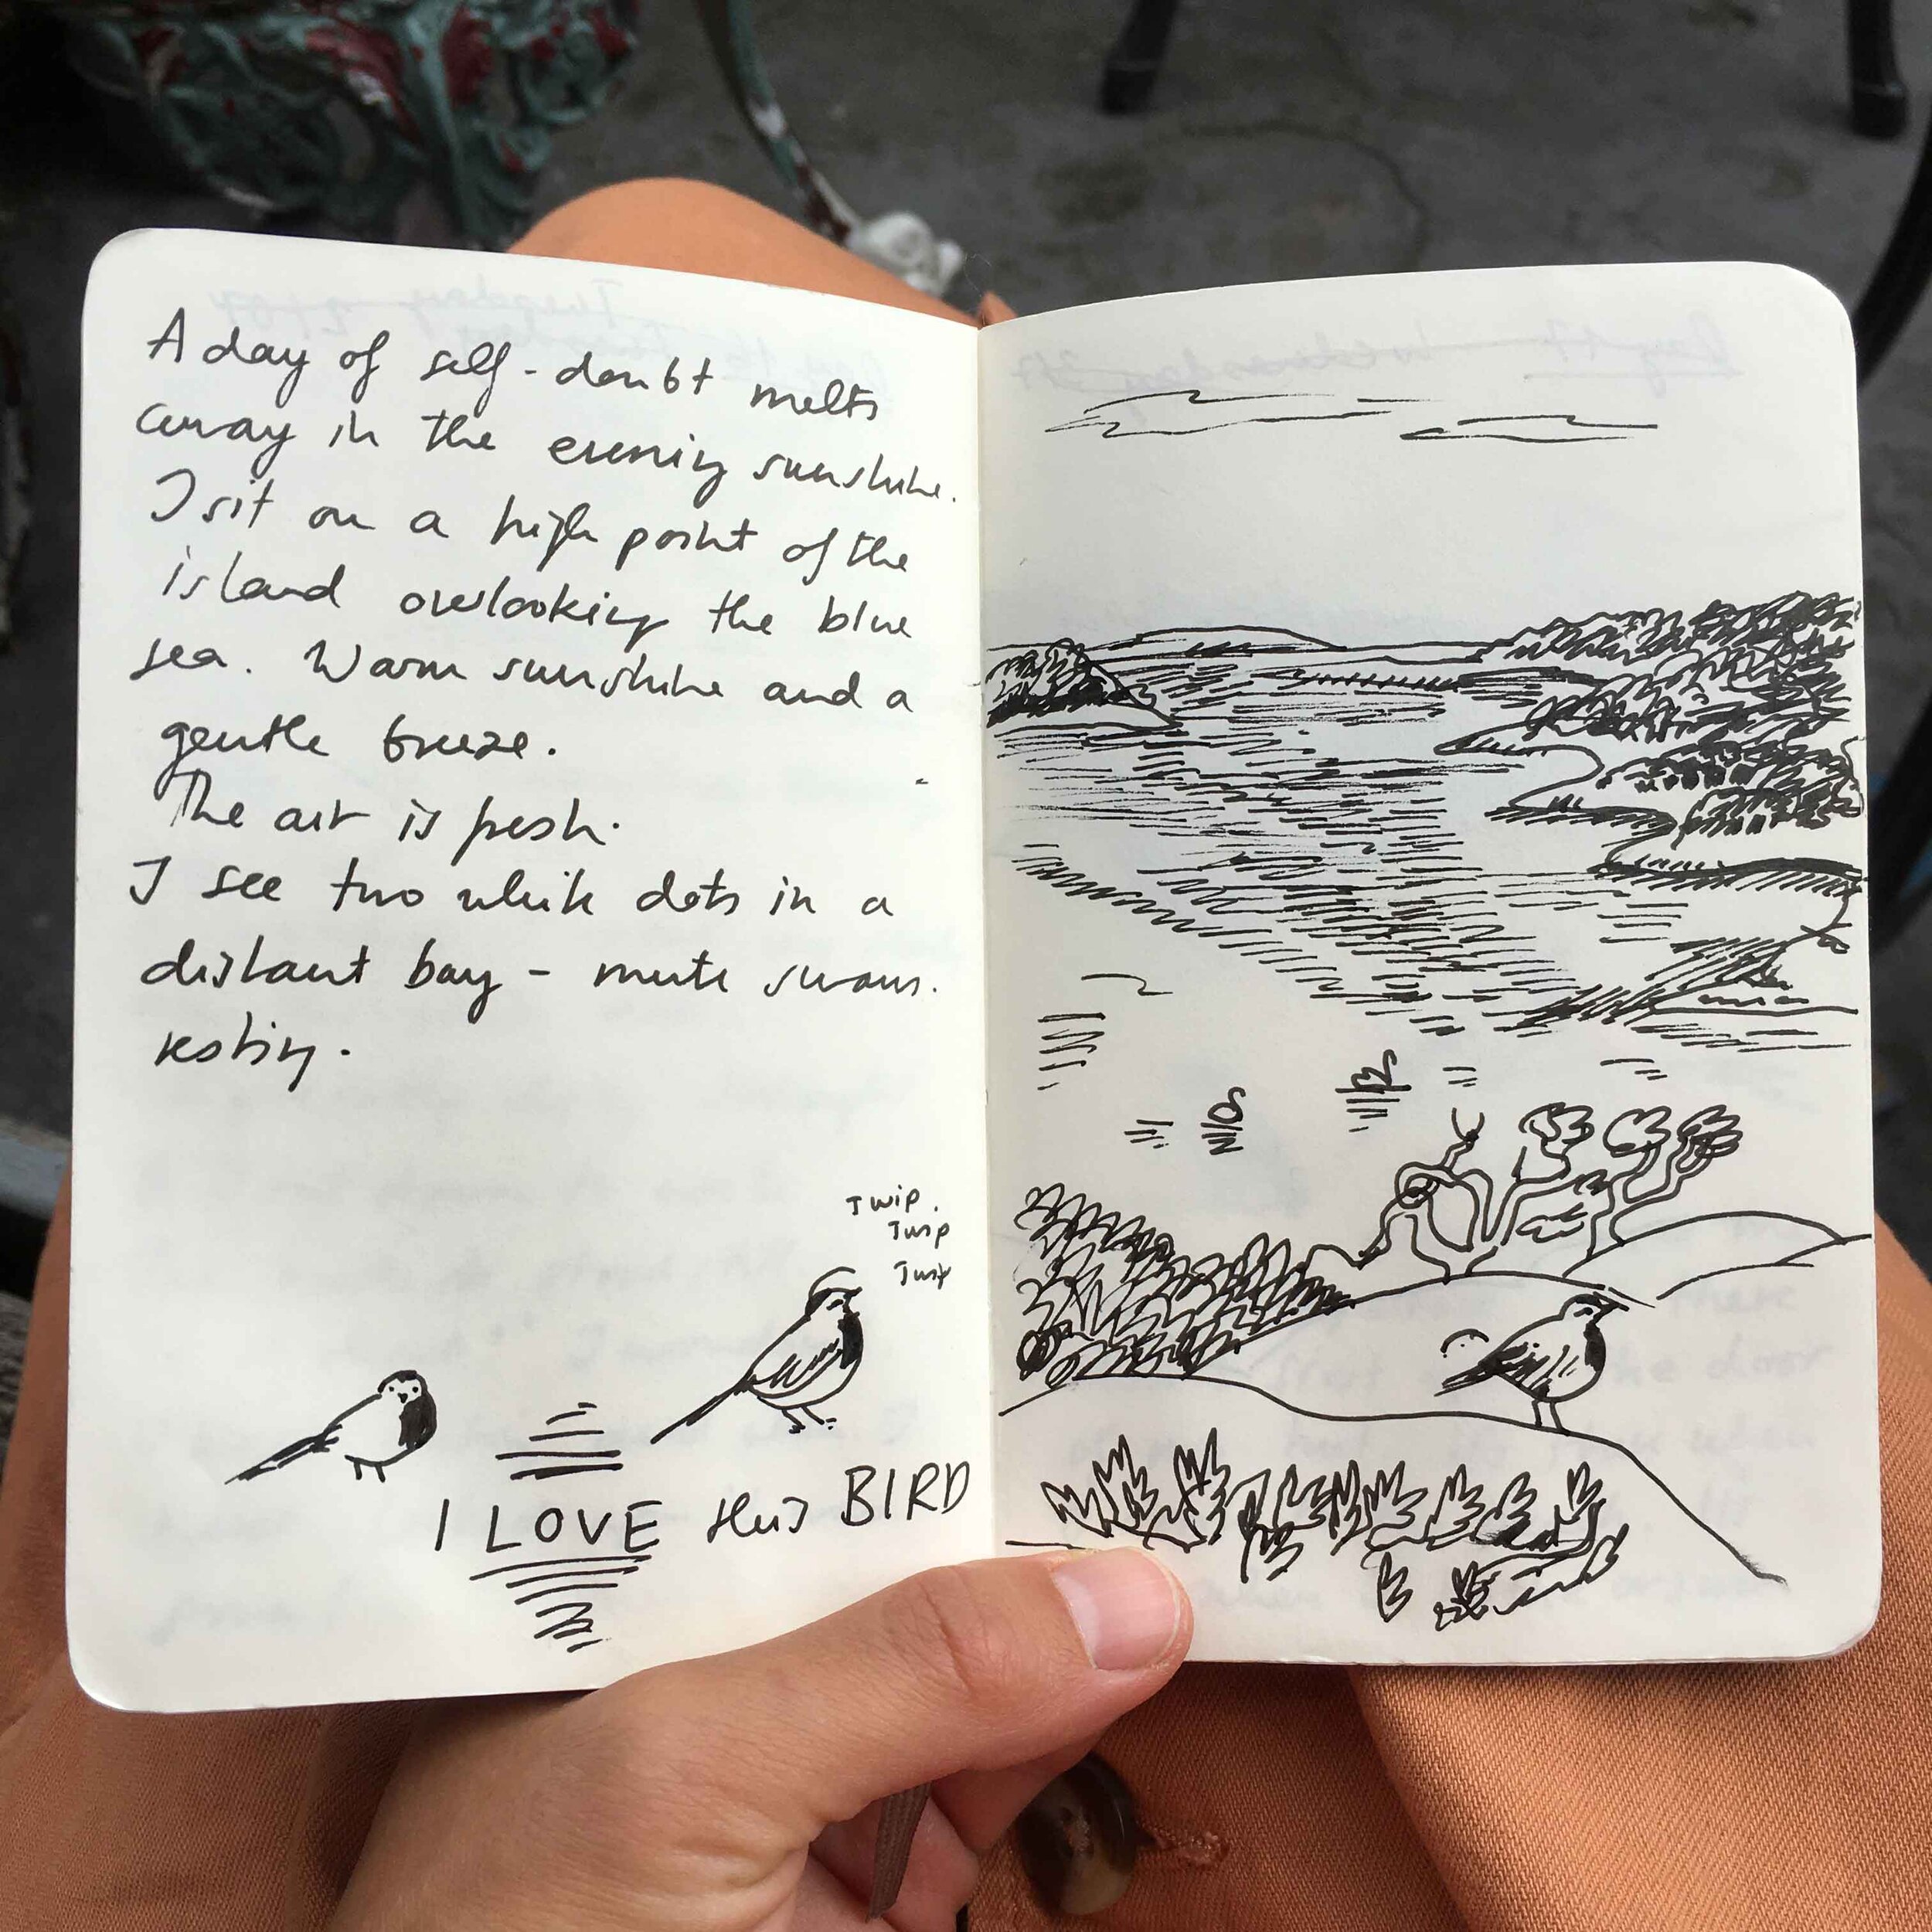 A day of self-doubt melts
away in the evening sunshine.
I sit on a high point of the
island overlooking the blue
sea. Warm sunshine and a
gentle breeze.
The air is fresh.
I see two white dots in a
distant bay - mute swans.
resting.
Twip.
Twip
Twip
I LOVE this BIRD